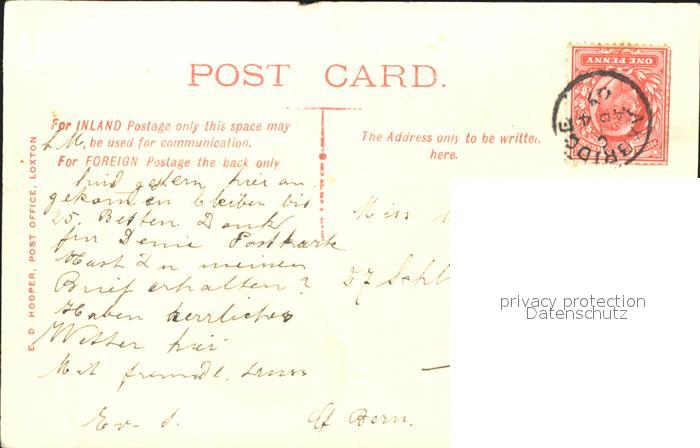 POST CARD.
ONE PENNY
BRIDGE
For INLAND Postage only this space may
be used for communication.
For FOREIGN Postage the back only
The Address only to be written
here.
E D HOOPER, POST OFFICE, LOXTON
L. M.
Sind gestern hier an-
gekommen bleiben bis
25. Besten Dank
für Deine Postkarte
Hast Du meinen
Brief erhalten?
Haben herrliches
Wetter hier
Mit freundl. Gruss
Ev. S.
Miss
57 Schl
Bern.
privacy protection
Datenschutz